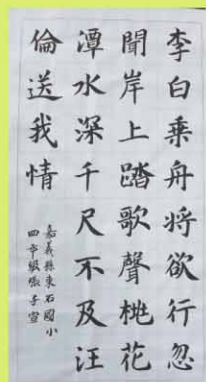 李白乘舟將欲行忽
聞岸上踏歌聲桃花
潭水深千尺不及汪
倫送我情
嘉義縣東石國小
四年級